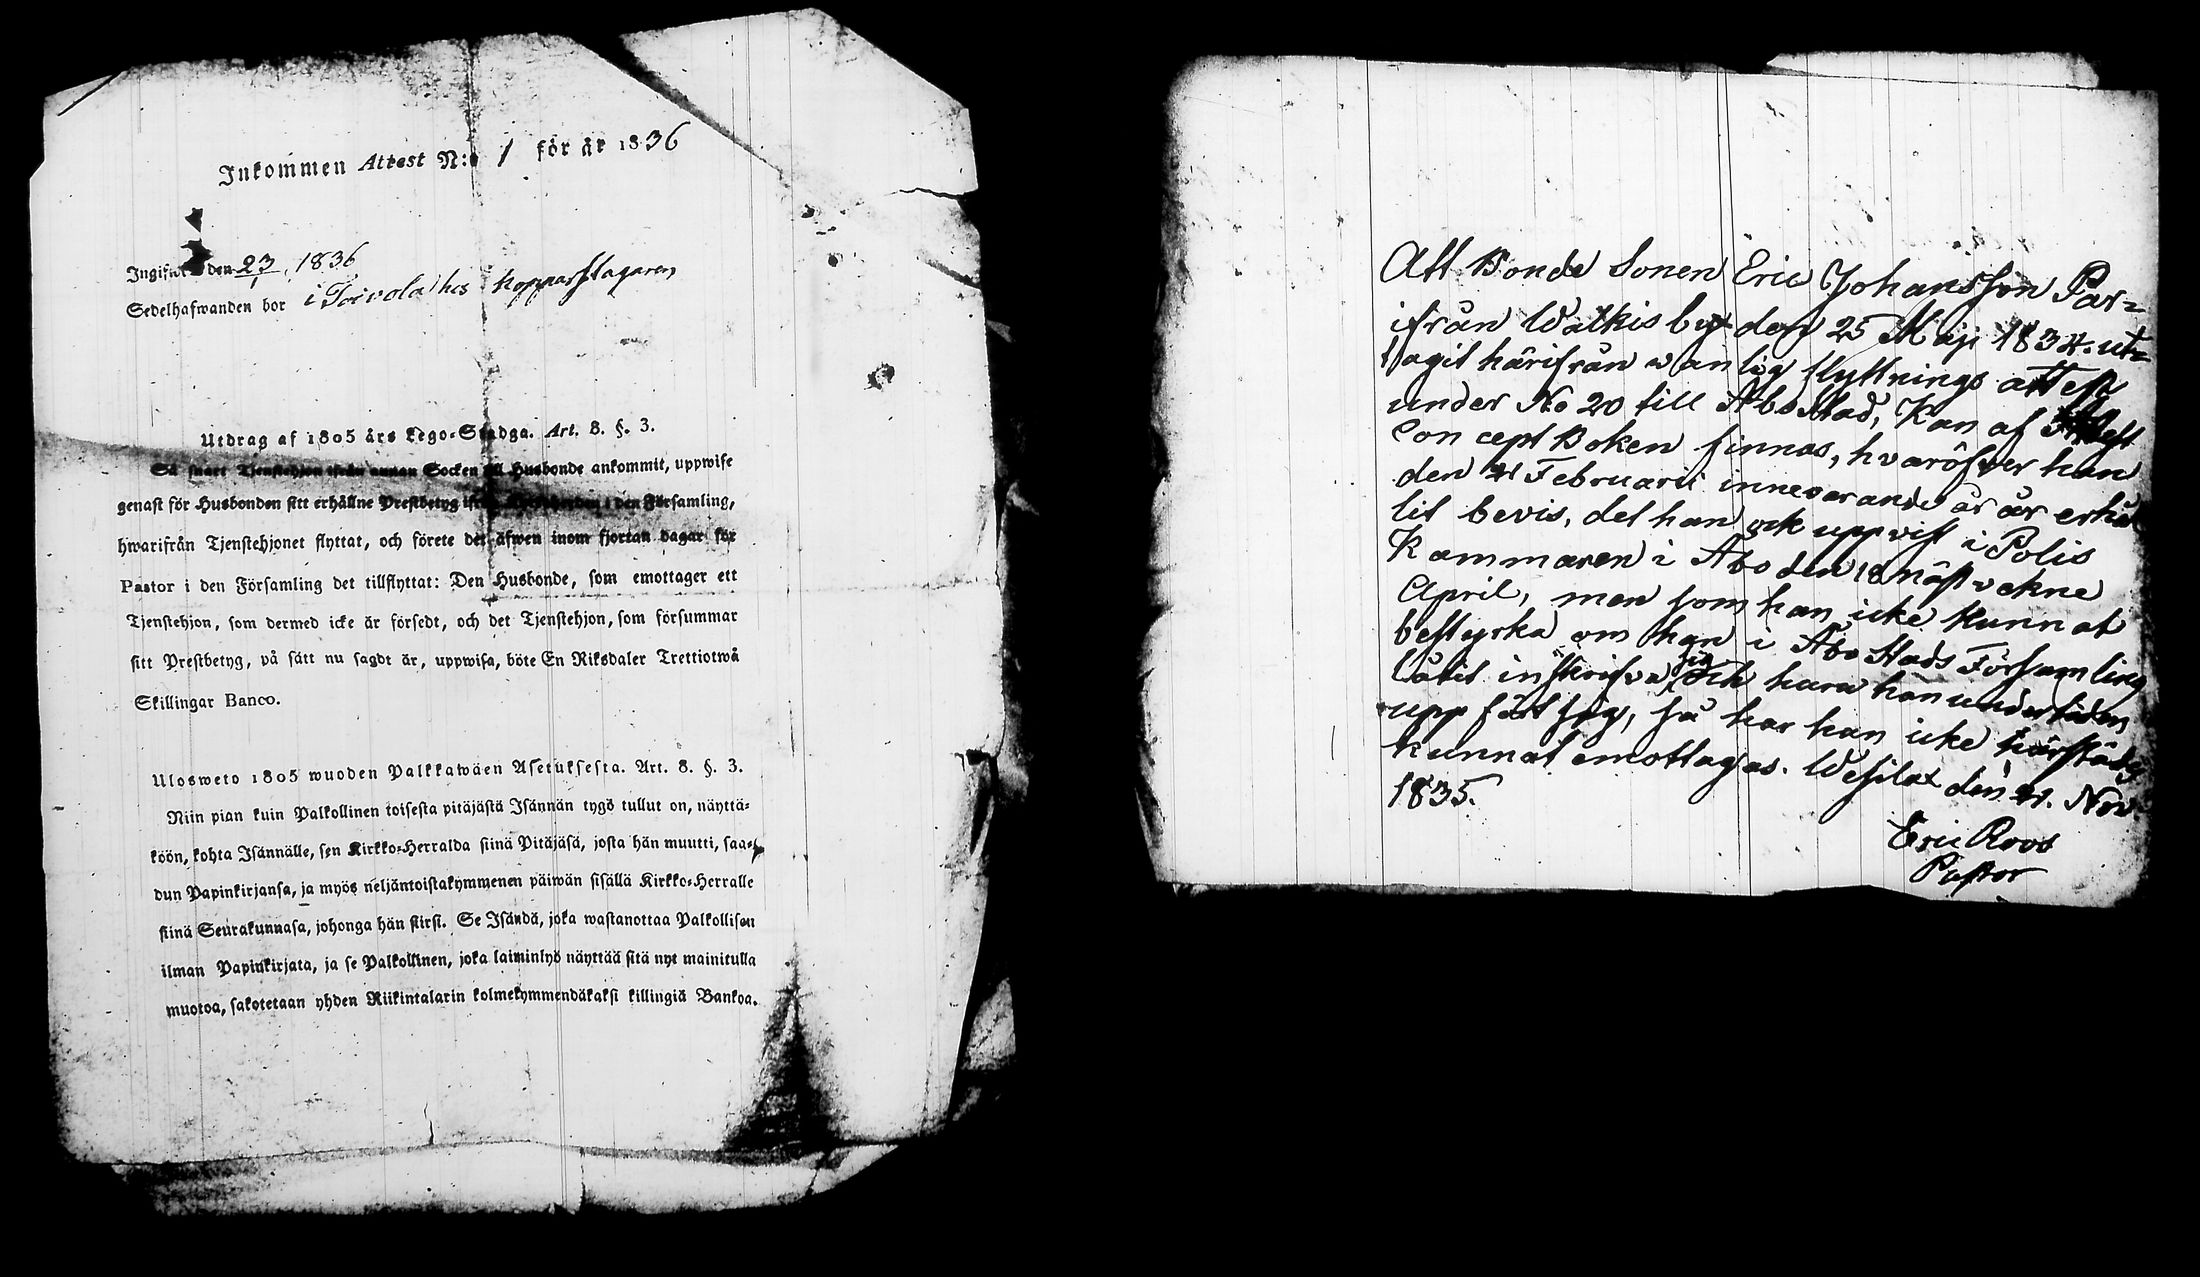 Inkommen Attest N:o 1 för år 1836
Ingifwen den 23/1 1836
Sedelhafwanden bor i Toivola hos Kopparslagaren
Utdrag af 1805 års Lego-Stadga. Art. 8. §. 3.
Så snart Tjenstehjon ifrån annan Socken till Husbonde ankommit, uppwise
genast för Husbonden sitt erhållne Prestbetyg ifrån i den Församling,
hwarifrån Tjenstehjonet flyttat, och förete det äfwen inom fjortan dagar för
Pastor i den Församling det tillflyttat: Den Husbonde, som emottager ett
Tjenstehjon, som dermed icke är försedt, och det Tjenstehjon, som försummar
sitt Prestbetyg, på sätt nu sagdt är, uppwisa, böte En Riksdaler Trettiotwå
Skillingar Banco.
Ulosweto 1805 wuoden Palkkawäen Asetuksesta. Art. 8. §. 3.
Niin pian kuin Palkollinen toisesta pitäjästä Isännän tygö tullut on, näyttä-
köön, kohta Isännälle, sen Kirkko-Herralda siinä Pitäjäsä, josta hän muutti, saa-
dun Papinkirjansa, ja myös neljäntoistakymmenen päiwän sisällä Kirkko-Herralle
siinä Seurakunnasa, johonga hän siirsi. Se Isändä, joka wastanottaa Palkollisen
ilman Papinkirjata, ja se Palkollinen, joka laiminlyö näyttää sitä nyt mainitulla
muotoa, sakotetaan yhden Riikintalarin kolmekymmendäkaksi killingiä Bankoa.
Att Bonde Sonen Eric Johansson Par=
ifrån Walkis by den 25 Maji 1834. ut=
tagit härifrån wanlig flyttnings attest
under No 20 till Åbo Stad, Kan af Attest
Concept Boken finnas, hvaröfver han
den 21 Februarii innevarande år är erhål
lit bevis, det han ock uppvist i Polis
Kammaren i Åbo den 18 näst vekne
April, men som han icke kunnat
bestyrka om han i Åbo Stads Församling
låtit inskrifva sig och huru han under tiden
uppfört sig, så har han icke härstädes
kunnat emottagas. Wesilax den 21. Nov.
1835.
Eric Roos
Pastor